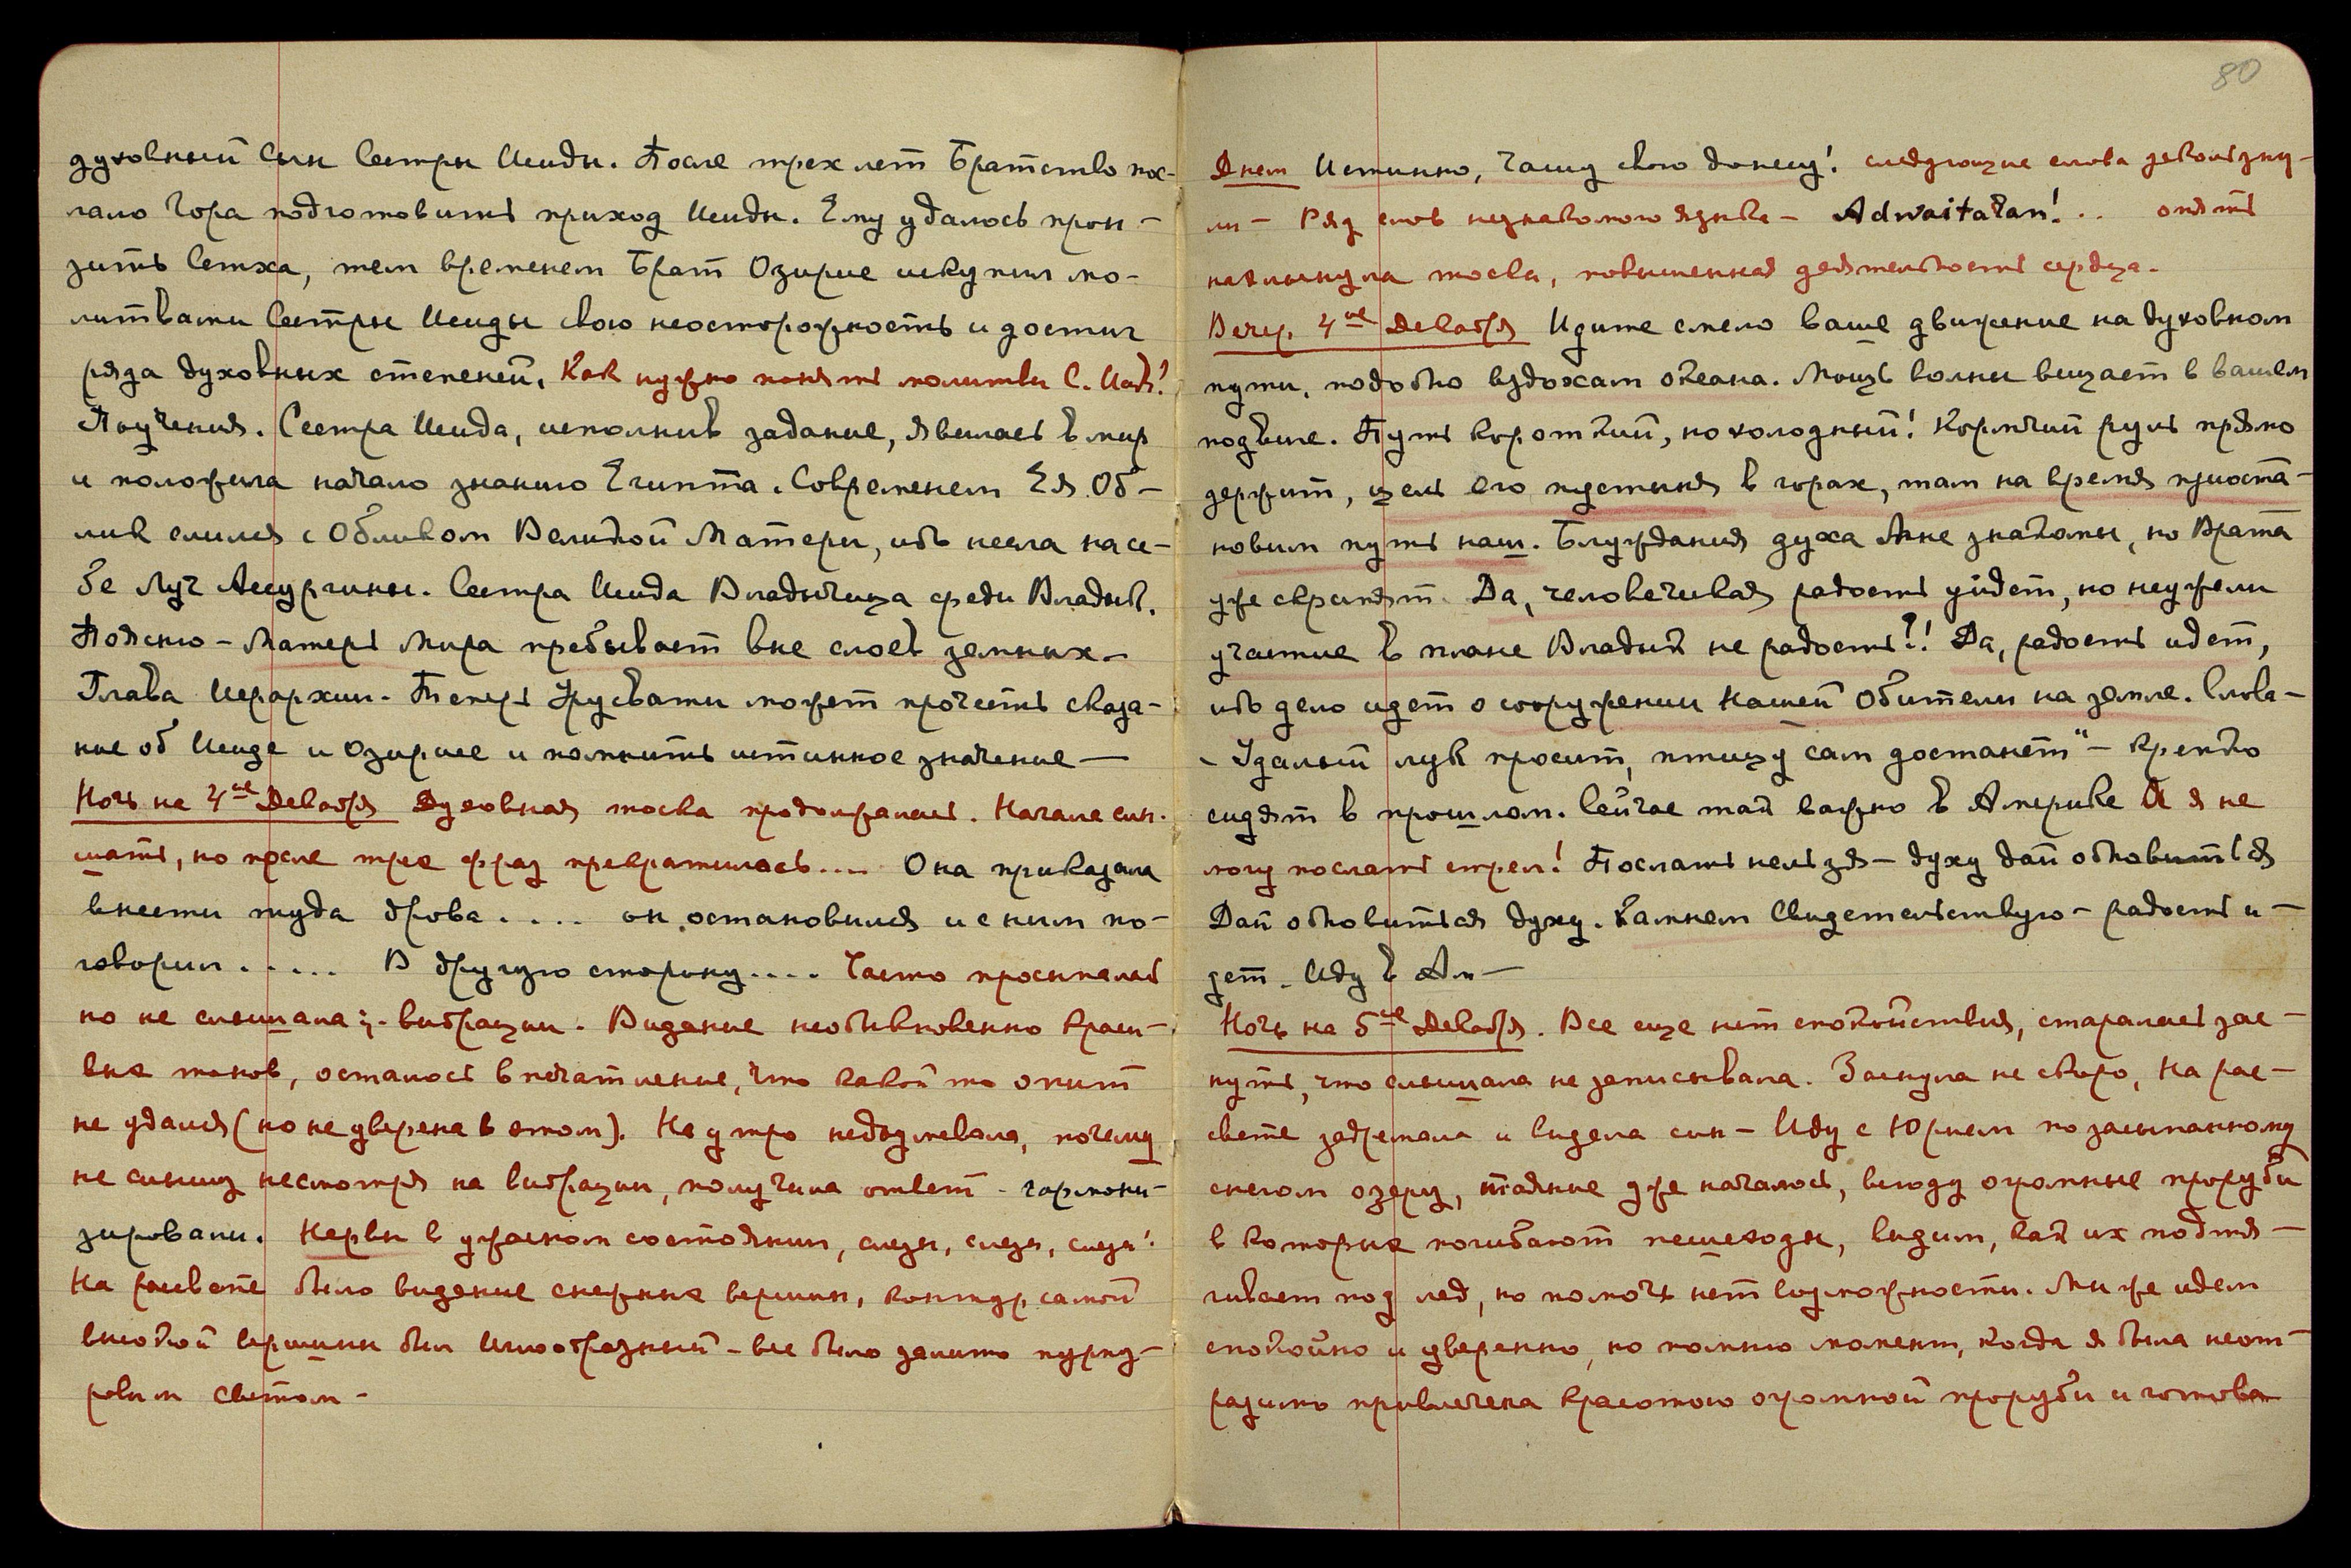 духовный Сын Сестры Изиды. После трех лет Братство пос-
лало Гора подготовить приход Изиды. Ему удалось прон-
зить Сетха, тем временем Брат Озирис искупил мо-
литвами Сестры Изиды свою неосторожность и достиг
ряда духовных степеней. Как нужно понять молитвы С. Изиды?
Поучения. Сестра Изида, исполнив задание, явилась в мир
и положила начало знанию Египта. Современем Ея Об-
лик слился с Обликом Великой Матери, ибо несла на се-
бе Луч Ассургины. Сестра Изида Владычица среди Владык.
Поясню – Матерь Мира пребывает вне слоев земных –
Глава Иерархии. Теперь Урусвати может прочесть сказа-
ние об Изиде и Озирисе и помнить истинное значение —
Ночь на 4ое Декабря Духовная тоска продолжалась. Начала слы-
шать, но после трех фраз прекратилось.... Она приказала
внести туда дрова.... он остановился и с ним по-
говорил..... В другую сторону.... Часто просыпалась
но не слышала; вибрации. Видение необыкновенно краси-
вых тонов, осталось впечатление, что какой то опыт
не удался (но не уверена в этом). На утро недоумевала, почему
не слышу несмотря на вибрации, получила ответ – гармони-
зировали. Нервы в ужасном состоянии, слезы, слезы, слезы!
На рассвете было видение снежных вершин, контур самой
высокой вершины был иглообразный – все было залито пурпу-
ровым светом –
80
Днем Истинно, чашу свою донесу! следующие слова ускользну-
ли – Ряд слов незнакомого языка – Adwaitatan!.. опять
нахлынула тоска, повышенная деятельность сердца.
Вечер. 4ое Декабря Идите смело ваше движение на духовном
пути, подобно вздохам океана. Мощь волны вещает в вашем
подвиге. Путь короткий, но холодный! Кормчий руль прямо
держит, цель его пустыня в горах, там на время приоста-
новим путь наш. Блуждания духа Мне знакомы, но Врата
уже скрипят. Да, человеческая радость уйдет, но неужели
участие в плане Владык не радость?! Да, радость идет,
ибо дело идет о сооружении Нашей Обители на земле. Слова –
„Удалый лук просит, птицу сам достанет“ – крепко
сидят в прошлом. Сейчас так важно в Америке А я не
могу послать стрел! Послать нельзя – духу дай обновиться
Дай обновиться духу. Камнем Свидетельствую – радость и –
дет. Иду в Ам –
Ночь на 5ое Декабря. Все еще нет спокойствия, старалась зас-
нуть, что слышала не записывала. Заснула не скоро, На рас-
свете задремала и видела сон – Иду с Юрием по засыпанному
снегом озеру, таяние уже началось, всюду огромные проруби
в которых погибают пешеходы, видим, как их подтя-
гивает под лед, но помочь нет возможности. Мы же идем
спокойно и уверенно, но помню момент, когда я была неот-
разимо привлечена красотою огромной проруби и готова